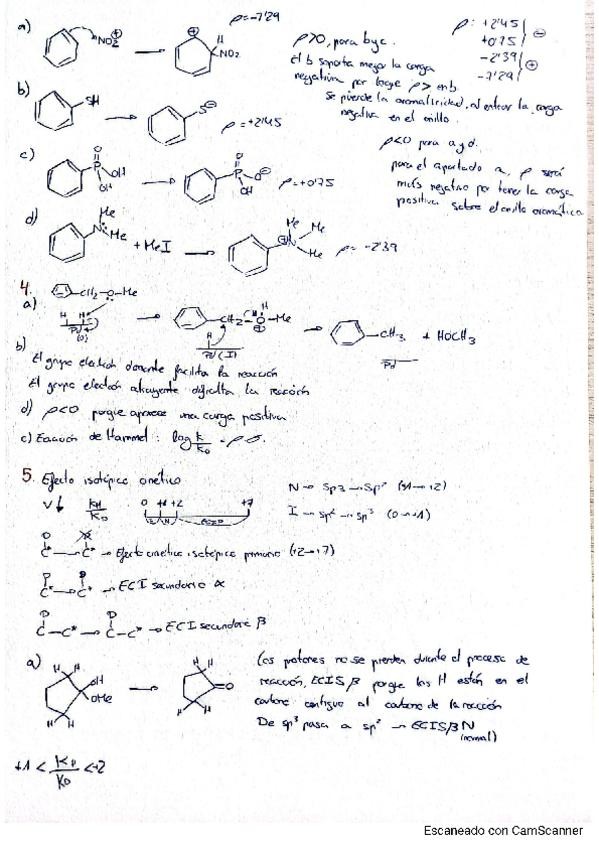 a)
NO2
H
NO2
ρ=-7'29
ρ>0, para b y c.
El b soporta mejor la carga
negativa por
Se pierde la aromaticidad, al entrar la carga
negativa en el anillo.
ρ: +2'45
+0'75
-2'39
-7'29
b)
SH
S
ρ=+2'45
ρ<0 para a y d.
para el apartado a, ρ será
más negativo por tener la carga
positiva sobre el anillo aromático
c)
O
P-OH
OH
O
P-O
OH
ρ=+0'75
d)
Me
N
Me
+ MeI
Me
Me
N
Me
ρ=-2'39
4.
a)
CH2-O-Me
H H
Pd
(0)
CH2-O-Me
H
H
Pd(II)
CH3
+ HOCH3
Pd
b)
El grupo electrón donante facilita la reacción
El grupo electrón atrayente dificulta la reacción
d) ρ<0 porque aparece una carga positiva
c) Ecuación de Hammet: log k/k0 = ρσ
5. Efecto isotópico cinético
KH
KD
0 +1 +2 +7
N → Sp3 → Sp2 (+1→+2)
I → Sp2 → Sp3 (0→+1)
→ Efecto cinético isotópico primario (+2→+7)
→ ECI secundario α
→ ECI secundario β
a)
H H
OH
OMe
H H
H H
O
H H
Los protones no se pierden durante el proceso de
reacción, ECIS β porque los H están en el
carbono contiguo al carbono de la reacción
De sp3 pasa a sp2 → ECIS β N
(normal)
+1 < KH/KD < +2
Escaneado con CamScanner